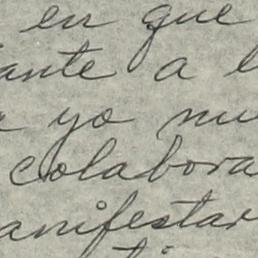 en que
ante a l
yo nu
colabora
anifestar